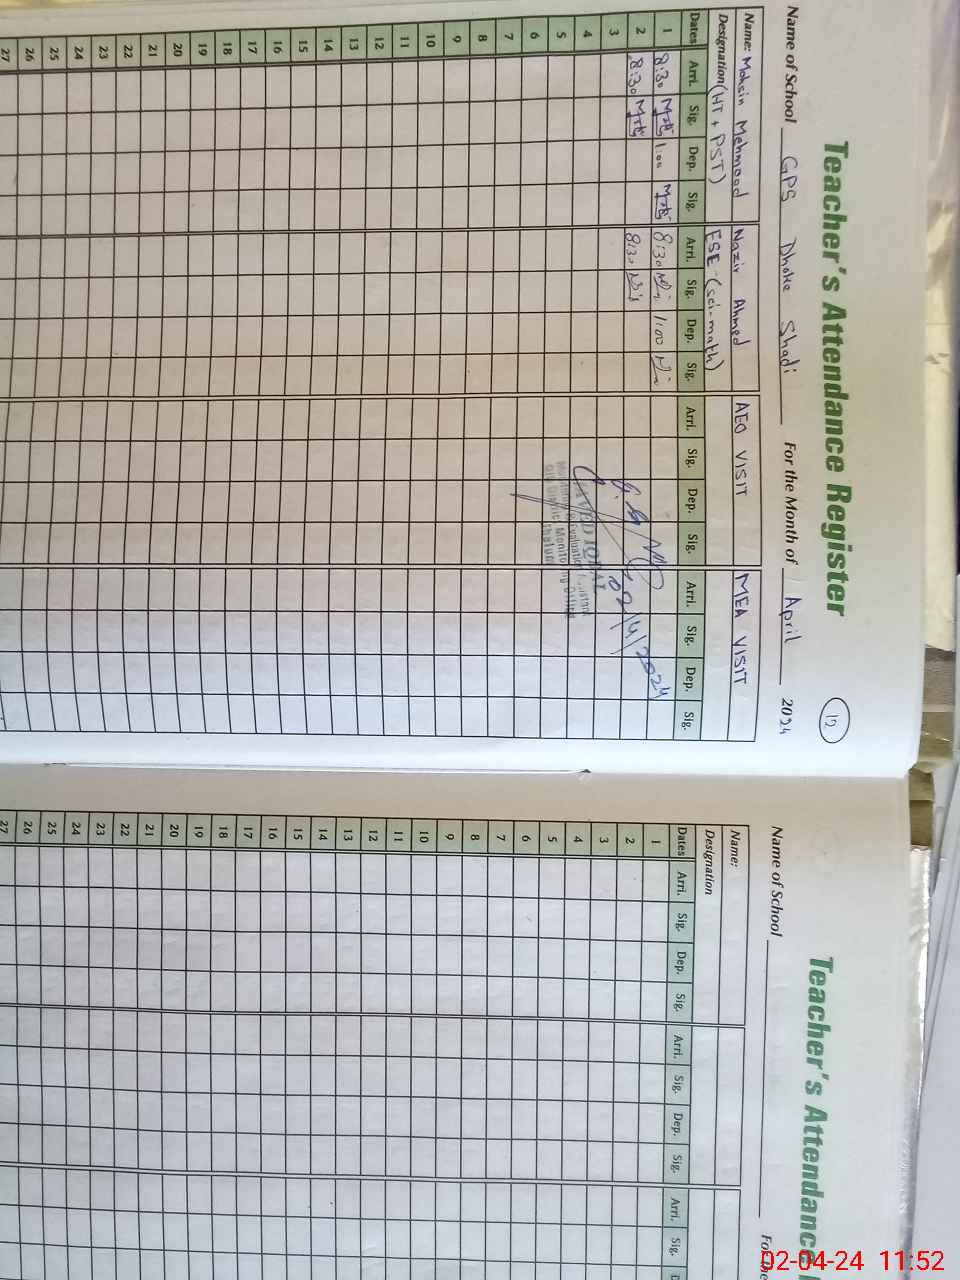 Teacher's Attendance Register
12
Name of School GPS Dhoke Shadi For the Month of April 2024
Name: Mohsin Mehmood Nazir Ahmed AEO VISIT MEA VISIT
Designation (HT + PST) ESE-(sci-math)
Dates Arri. Sig. Dep. Sig. Arri. Sig. Dep. Sig. Arri. Sig. Dep. Sig. Arri. Sig. Dep. Sig.
1 8:30 1:00 8:30 1:00
2 8:30 8:30
02/4/2024
3
4
JAVED IQBAL
Monitoring & Evaluation Assistant
District Monitoring Office
5
6
7
8
9
10
11
12
13
14
15
16
17
18
19
20
21
22
23
24
25
26
27
Teacher's Attendance
Name of School For the
Name:
Designation
Dates Arri. Sig. Dep. Sig. Arri. Sig. Dep. Sig. Arri. Sig.
1
2
3
4
5
6
7
8
9
10
11
12
13
14
15
16
17
18
19
20
21
22
23
24
25
26
27
02-04-24 11:52